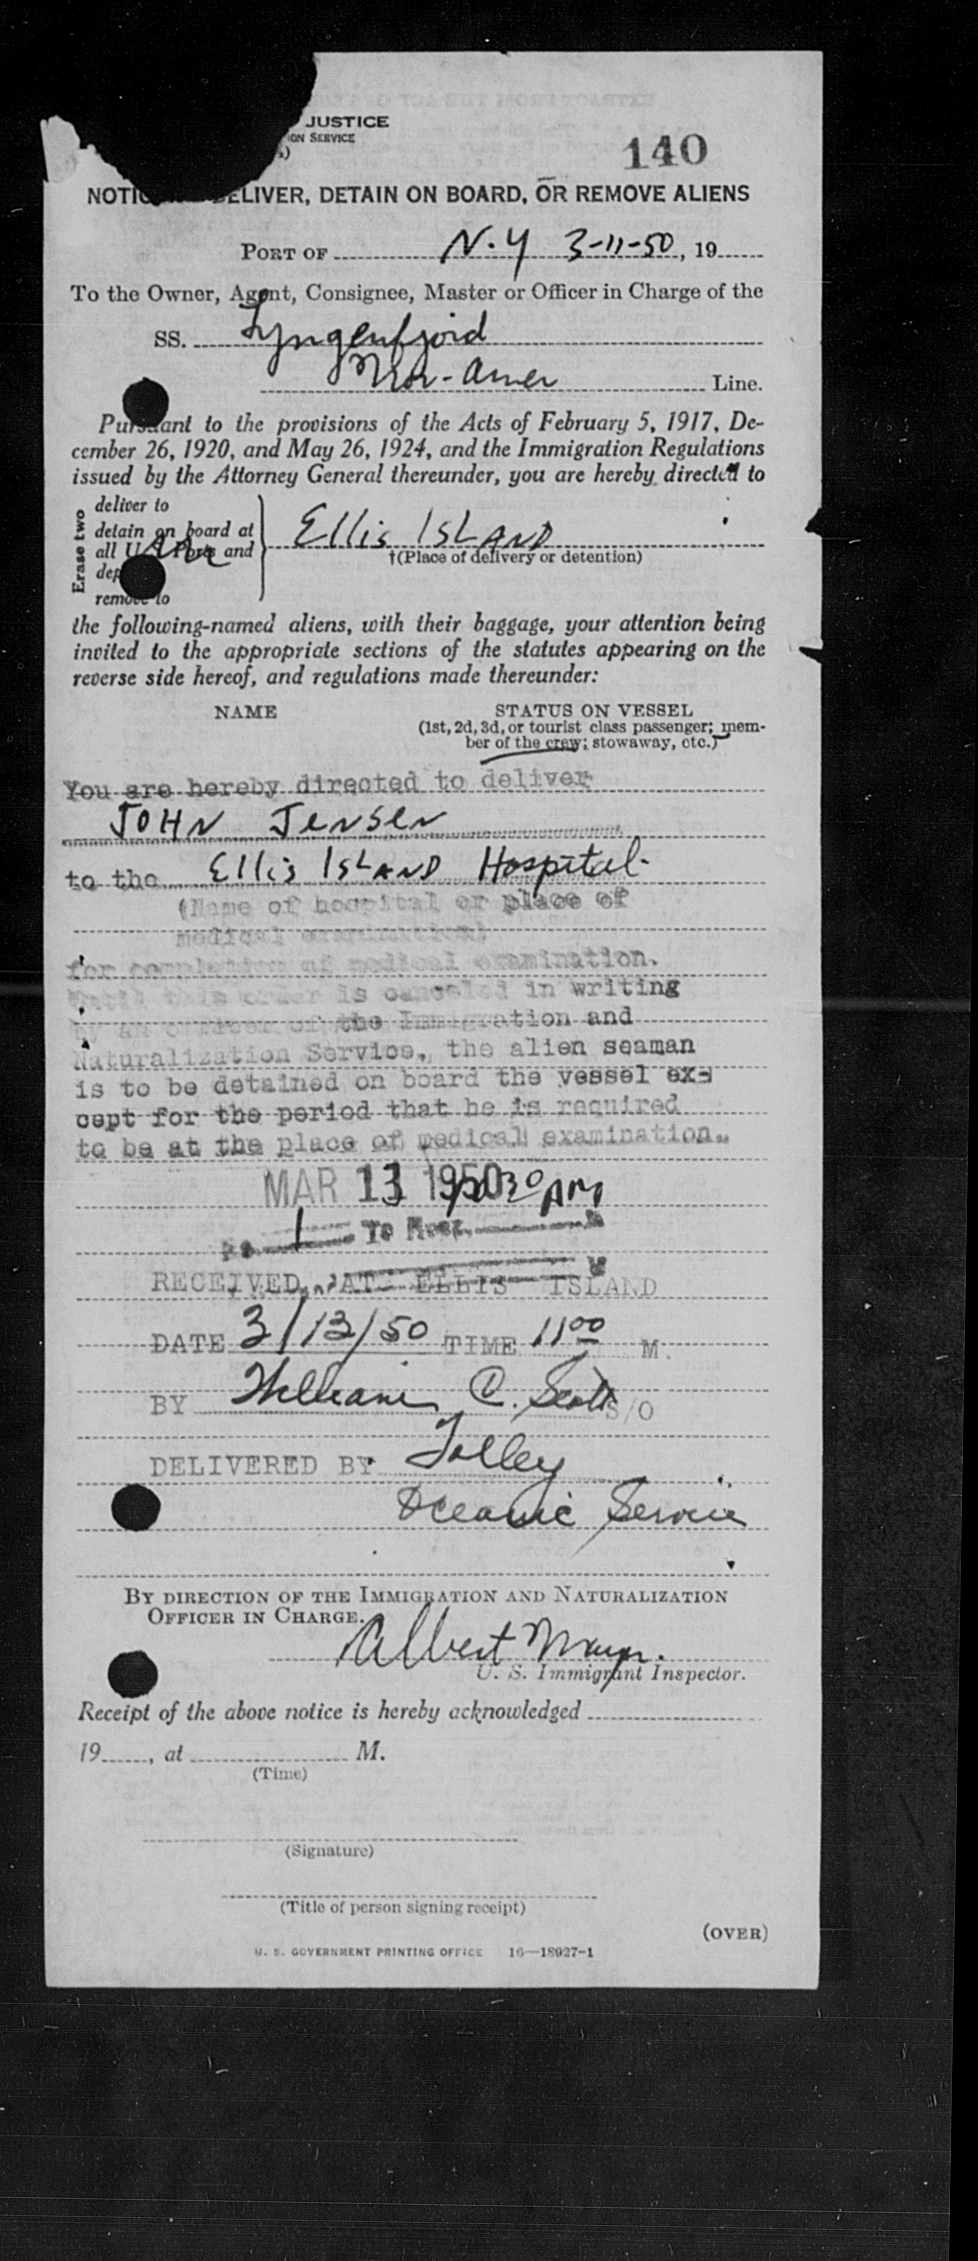 JUSTICE
ON SERVICE
140
NOTIC DELIVER, DETAIN ON BOARD, OR REMOVE ALIENS
PORT OF N.Y 3-11-50, 19
To the Owner, Agent, Consignee, Master or Officer in Charge of the
SS. Lyngenfjord
Nor-Amer Line.
Pursuant to the provisions of the Acts of February 5, 1917, De-
cember 26, 1920, and May 26, 1924, and the Immigration Regulations
issued by the Attorney General thereunder, you are hereby directed to
Erase two
deliver to
detain on board at
all U.S. Ports and
dep
remove to
Ellis ISLAND
†(Place of delivery or detention)
the following-named aliens, with their baggage, your attention being
invited to the appropriate sections of the statutes appearing on the
reverse side hereof, and regulations made thereunder:
NAME
STATUS ON VESSEL
(1st, 2d, 3d, or tourist class passenger; mem-
ber of the crew; stowaway, etc.)
You are hereby directed to deliver
JOHN JENSEN
to the Ellis ISLAND Hospital.
(Name of hospital or place of
medical examination)
for completion of medical examination.
Until this order is canceled in writing
by an officer of the Immigration and
Naturalization Service, the alien seaman
is to be detained on board the vessel ex-
cept for the period that he is required
to be at the place of medical examination.
MAR 13 1950 1030 AM
1 To Hosp.
RECEIVED AT ELLIS ISLAND
DATE 3/13/50 TIME 1100 M.
BY William C. Scott S/O
DELIVERED BY Tolley
Oceanic Service
BY DIRECTION OF THE IMMIGRATION AND NATURALIZATION
OFFICER IN CHARGE.
Albert Mayer.
U. S. Immigrant Inspector.
Receipt of the above notice is hereby acknowledged
19, at M.
(Time)
(Signature)
(Title of person signing receipt)
(OVER)
U. S. GOVERNMENT PRINTING OFFICE 16—18927-1